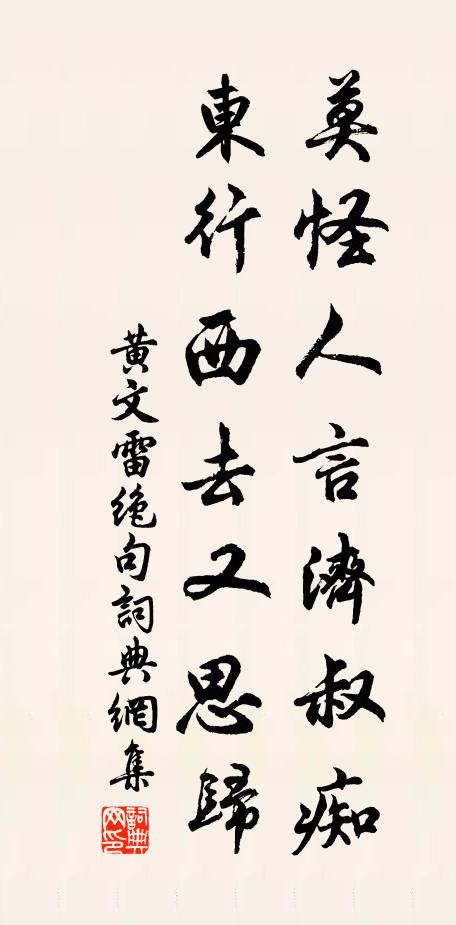 莫怪人言濟叔痴
東行西去又思歸
黃文雷絶句詞典網集
詞典网印